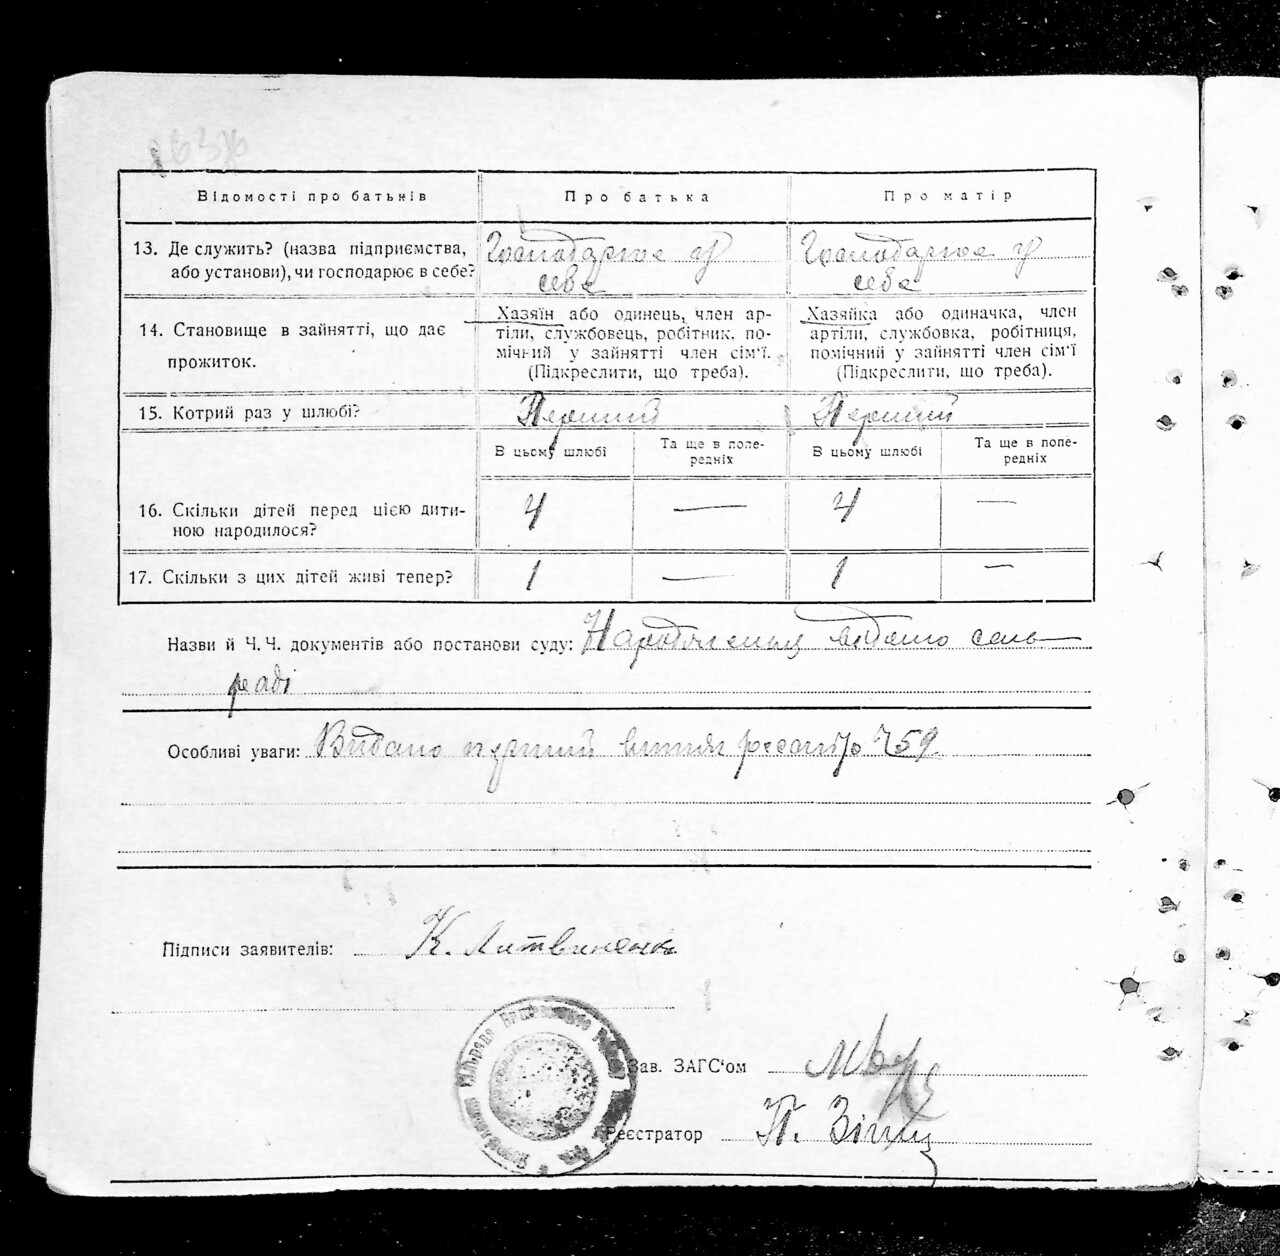 Відомості про батьків
Про батька
Про матір
13. Де служить? (назва підприємства, або установи), чи господарює в себе?
Господарює у
себе
Господарює у
себе
14. Становище в зайнятті, що дає
прожиток.
Хазяїн або одинець, член ар-
тіли, службовець, робітник, по-
мічний у зайнятті член сім'ї.
(Підкреслити, що треба).
Хазяйка або одиначка, член
артіли, службовка, робітниця,
помічний у зайнятті член сім'ї
(Підкреслити, що треба).
15. Котрий раз у шлюбі?
Перший
Перший
В цьому шлюбі
Та ще в попе-
редніх
В цьому шлюбі
Та ще в попе-
редніх
16. Скільки дітей перед цією дити-
ною народилося?
4 — 4 —
17. Скільки з цих дітей живі тепер?
1 — 1 —
Назви й Ч. Ч. документів або постанови суду: Народження відомо сель
раді
Особливі уваги: Видано перший витяг 759
Підписи заявителів: К. Литвиненко
Зав. ЗАГС'ом
Реєстратор